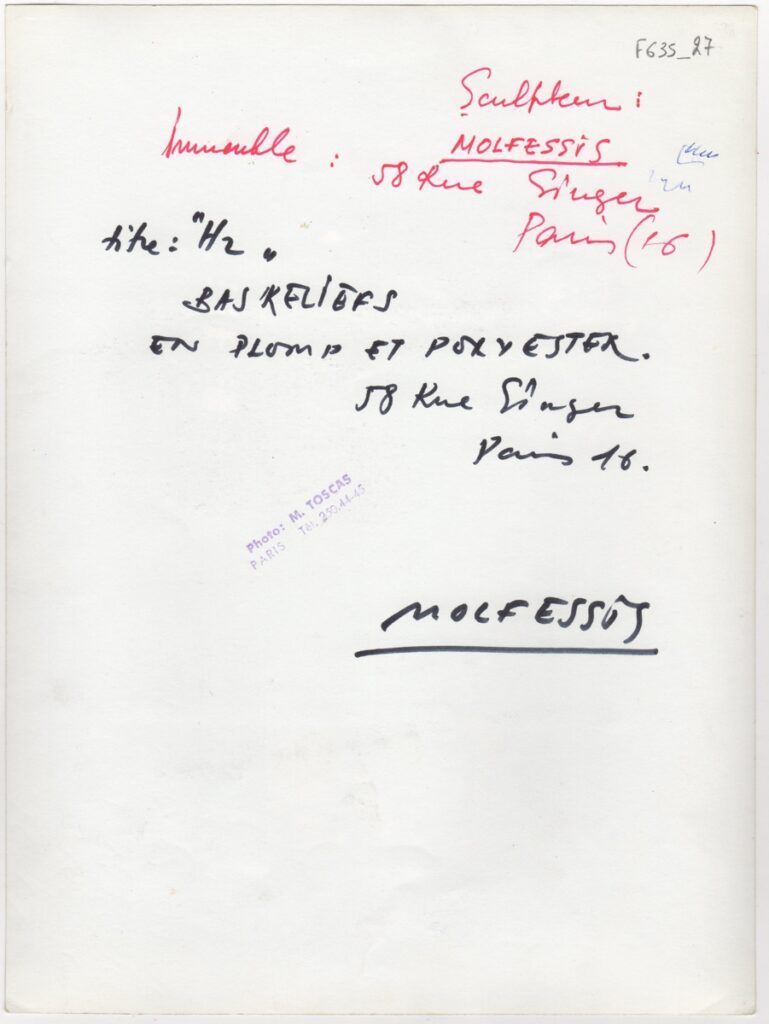 F635_27
Sculpteur :
Immeuble :
MOLFESSIS
58 Rue Singer
Paris (16)
titre : "H2"
BAS RELIEFS
EN PLOMB ET POLYESTER.
58 Rue Singer
Paris 16.
Photo: M. TOSCAS
PARIS Tél. 250.44-45
MOLFESSIS